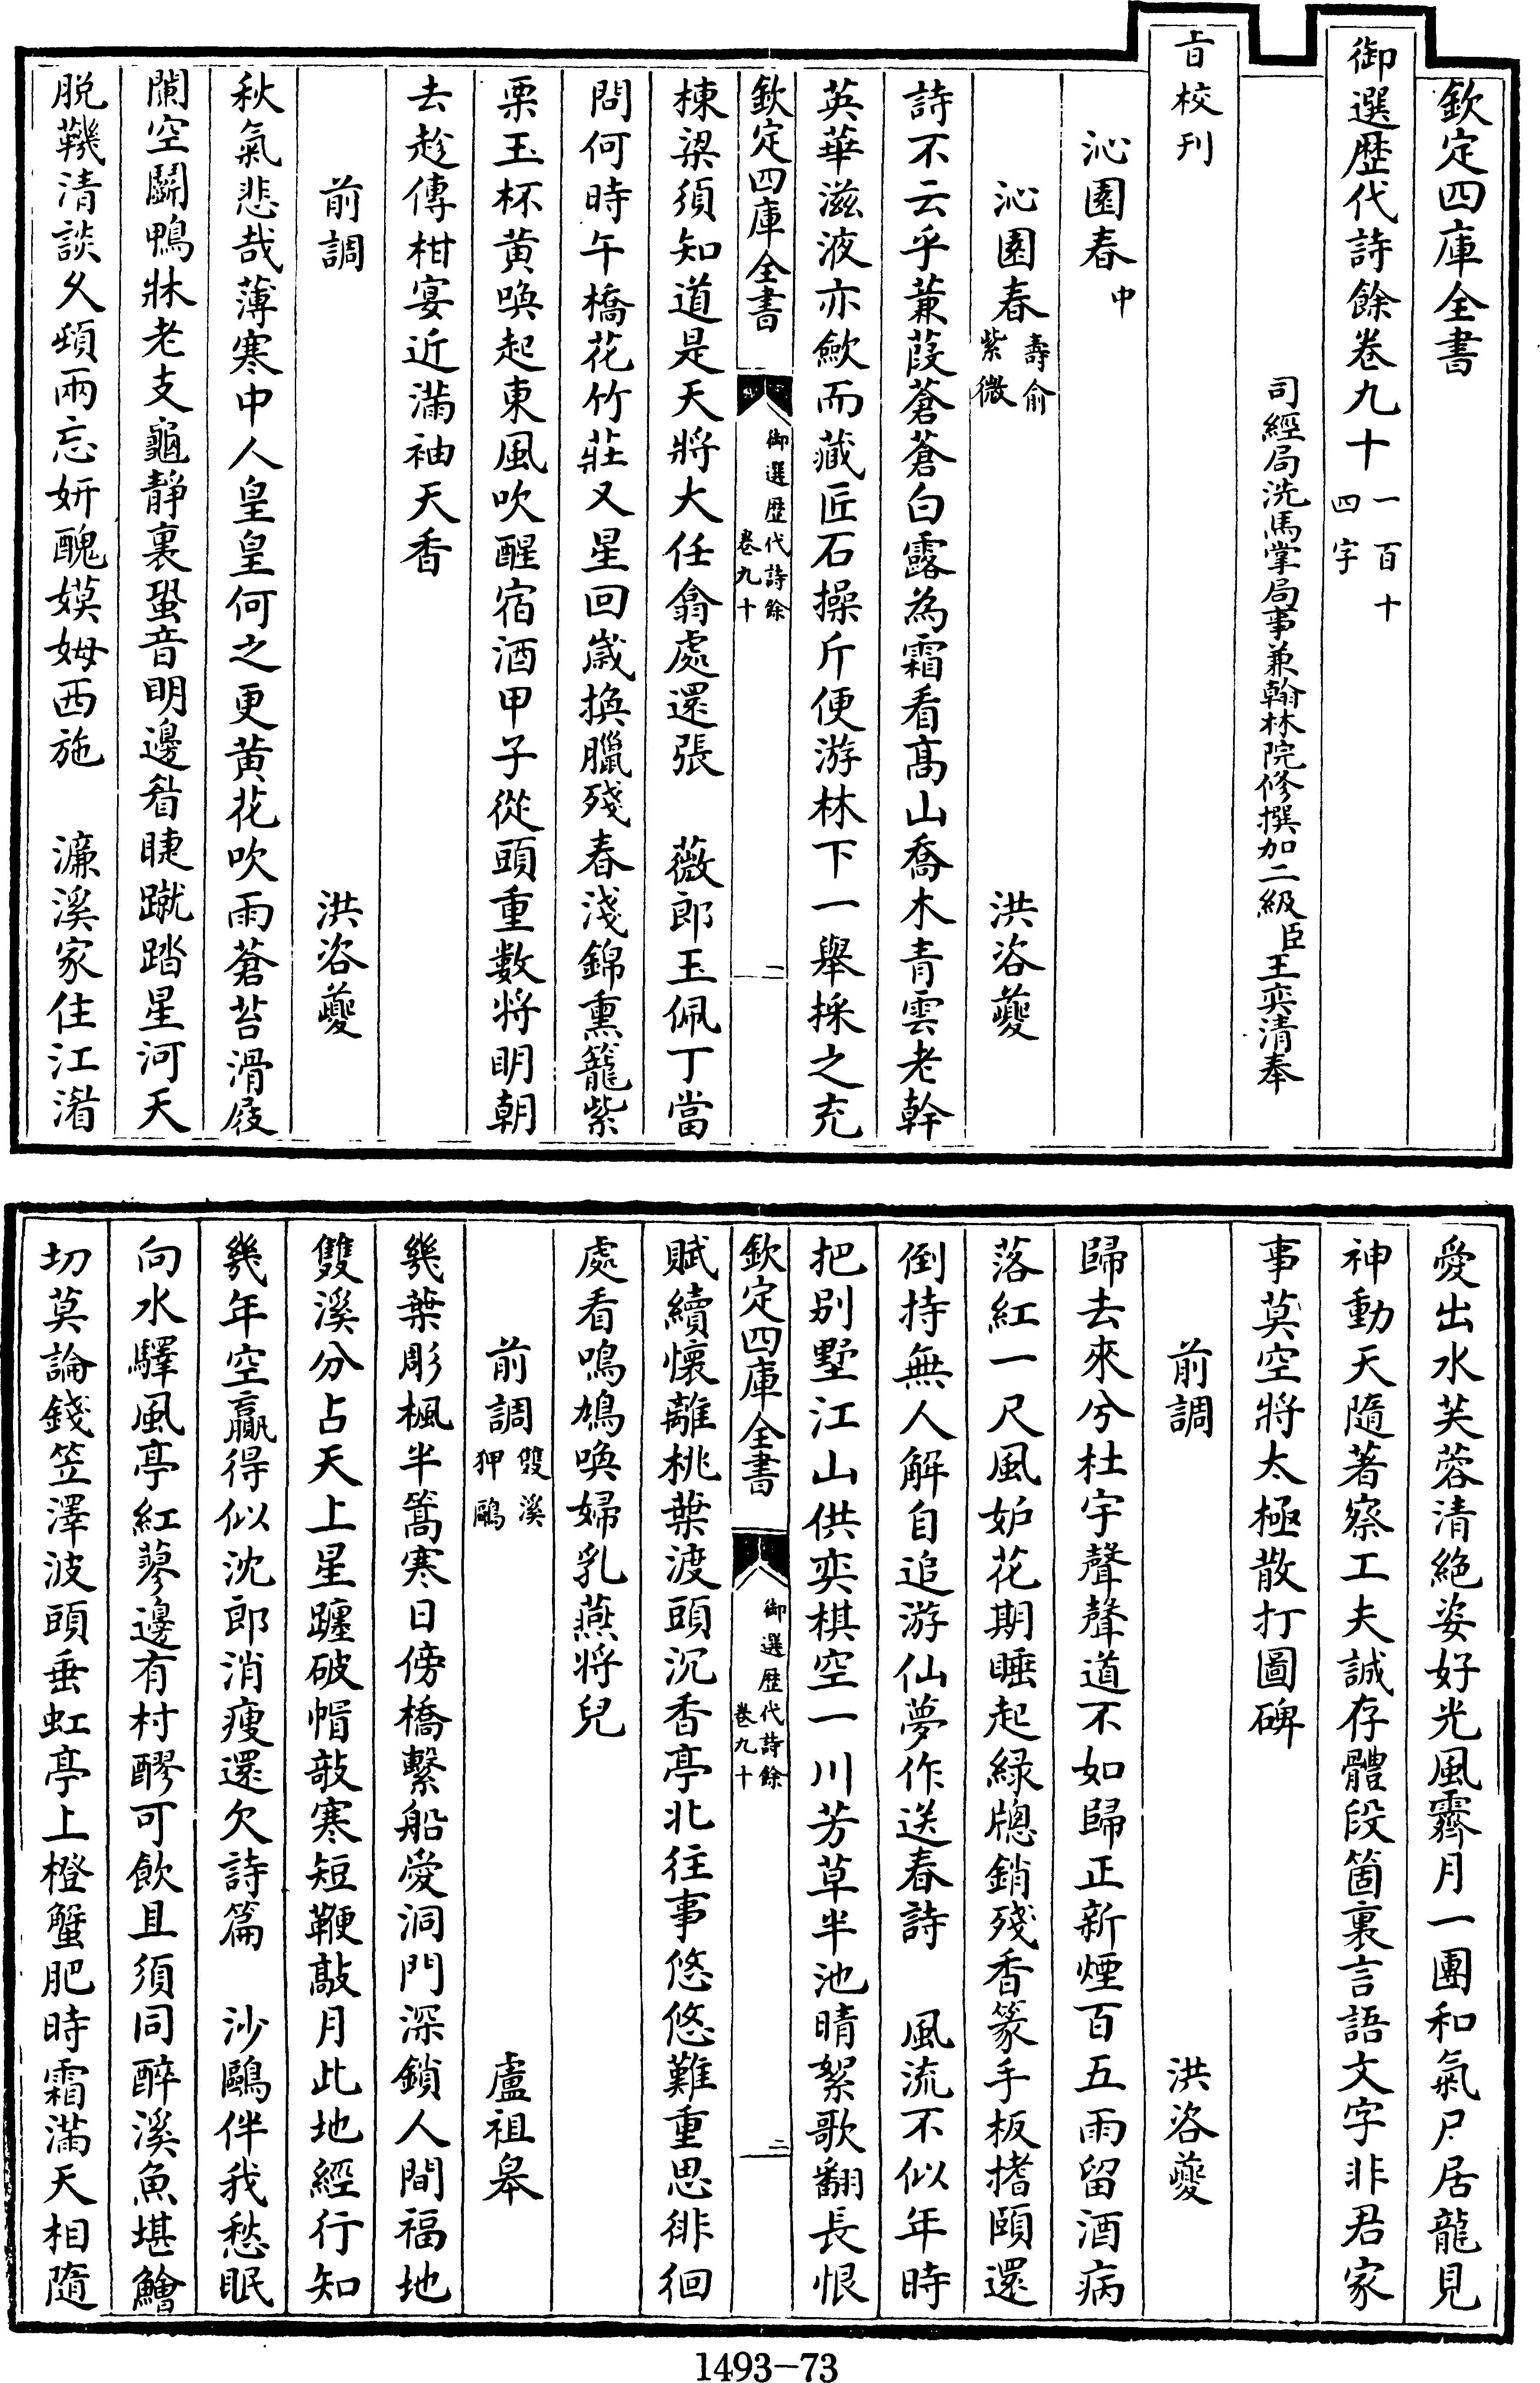 欽定四庫全書
御選歴代詩餘卷九十一百十四字
司經局洗馬掌局事兼翰林院修撰加二級臣王奕清奉
旨校刋
沁園春中
沁園春壽俞紫微 洪咨夔
詩不云乎蒹葭蒼蒼白露為霜看髙山喬木青雲老幹
英華滋液亦歛而藏匠石操斤便游林下一舉採之充
欽定四庫全書 御選歴代詩餘卷九十 一
棟梁須知道是天將大任翕處還張 薇郎玉佩丁當
問何時午橋花竹莊又星回嵗換臘殘春淺錦熏籠紫
栗玉杯黄喚起東風吹醒宿酒甲子從頭重數將明朝
去趂傳柑宴近滿袖天香
前調 洪咨夔
秋氣悲哉薄寒中人皇皇何之更黄花吹雨蒼苔滑屐
闌空鬭鴨牀老支龜靜裏蛩音明邊眥睫蹴踏星河天
脱鞿清談久頃兩忘妍醜嫫姆西施 濂溪家住江湄
愛出水芙蓉清絶姿好光風霽月一團和氣尸居龍見
神動天隨著察工夫誠存體段箇裏言語文字非君家
事莫空將太極散打圖碑
前調 洪咨夔
歸去來兮杜宇聲聲道不如歸正新煙百五雨留酒病
落紅一尺風妒花期睡起緑牕銷殘香篆手板搘頤還
倒持無人解自追游仙夢作送春詩 風流不似年時
把别墅江山供奕棋空一川芳草半池晴絮歌翻長恨
欽定四庫全書 御選歴代詩餘卷九十 二
賦續懷離桃葉渡頭沉香亭北往事悠悠難重思徘徊
處看鳴鳩喚婦乳燕將兒
前調雙溪狎鷗 盧祖皋
幾葉彫楓半篙寒日傍橋繫船愛洞門深鎖人間福地
雙溪分占天上星躔破帽敧寒短鞭敲月此地經行知
幾年空贏得似沈郎消瘦還欠詩篇 沙鷗伴我愁眠
向水驛風亭紅蓼邊有村醪可飲且須同醉溪魚堪鱠
切莫論錢笠澤波頭垂虹亭上橙蟹肥時霜滿天相隨
1493-73